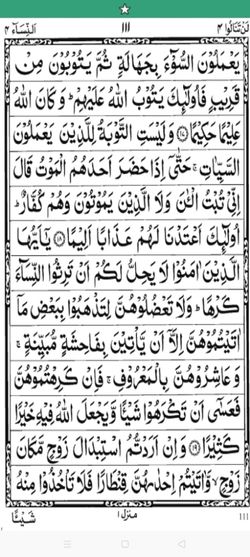 لن تنالوا ٤ ١١١ النسآء ٤
يَعْمَلُوْنَ السُّوْٓءَ بِجَهَالَةٍ ثُمَّ يَتُوْبُوْنَ مِنْ
قَرِيْبٍ فَاُولٰٓئِكَ يَتُوْبُ اللّٰهُ عَلَيْهِمْ ؕ وَكَانَ اللّٰهُ
عَلِيْمًا حَكِيْمًا ﴿١٧﴾ وَلَيْسَتِ التَّوْبَةُ لِلَّذِيْنَ يَعْمَلُوْنَ
السَّيِّاٰتِ ۚ حَتّٰۤى اِذَا حَضَرَ اَحَدَهُمُ الْمَوْتُ قَالَ
اِنِّيْ تُبْتُ الْـٰٔنَ وَلَا الَّذِيْنَ يَمُوْتُوْنَ وَهُمْ كُفَّارٌ ؕ
اُولٰٓئِكَ اَعْتَدْنَا لَهُمْ عَذَابًا اَلِيْمًا ﴿١٨﴾ يٰۤاَيُّهَا
الَّذِيْنَ اٰمَنُوْا لَا يَحِلُّ لَكُمْ اَنْ تَرِثُوا النِّسَآءَ
كَرْهًا ؕ وَلَا تَعْضُلُوْهُنَّ لِتَذْهَبُوْا بِبَعْضِ مَاۤ
اٰتَيْتُمُوْهُنَّ اِلَّاۤ اَنْ يَّاْتِيْنَ بِفَاحِشَةٍ مُّبَيِّنَةٍ ۚ
وَعَاشِرُوْهُنَّ بِالْمَعْرُوْفِ ۚ فَاِنْ كَرِهْتُمُوْهُنَّ
فَعَسٰۤى اَنْ تَكْرَهُوْا شَيْـًٔا وَّيَجْعَلَ اللّٰهُ فِيْهِ خَيْرًا
كَثِيْرًا ﴿١٩﴾ وَاِنْ اَرَدْتُّمُ اسْتِبْدَالَ زَوْجٍ مَّكَانَ
زَوْجٍ ۙ وَّاٰتَيْتُمْ اِحْدٰىهُنَّ قِنْطَارًا فَلَا تَاْخُذُوْا مِنْهُ
شَيْـًٔا منزل ١ ١١١